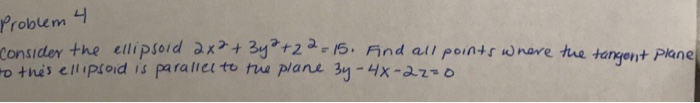 Problem 4
Consider the ellipsoid 2x² + 3y² + z² = 15. Find all points where the tangent plane
to this ellipsoid is parallel to the plane 3y - 4x - 2z = 0